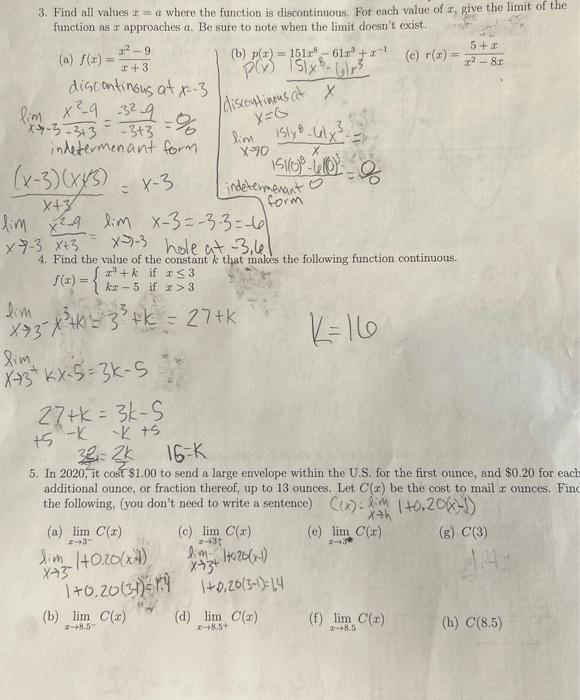 3. Find all values x = a where the function is discontinuous. For each value of x, give the limit of the
function as x approaches a. Be sure to note when the limit doesn't exist.
(a) f(x) = (x² − 9)/(x + 3)
discontinous at x=-3
lim x→-3 (x²-9)/(-3+3) = (-3²-9)/(-3+3) = 0/0
indetermenant form
(x-3)(x+3)/(x+3) = x-3
lim x→-3 (x²-9)/(x+3) = lim x→-3 x-3=-3-3=-6
hole at -3,6
(b) p(x) = 151x⁸ − 61x³ + x⁻¹
p(x) (151x⁸-61x³)/x
discoutinous at x=0
lim x→0 (151x⁸-61x³)/x =
(151(0)⁸-61(0)³)/0 = 0/0
indetermenant form
(c) r(x) = (5 + x)/(x² − 8x)
4. Find the value of the constant k that makes the following function continuous.
f(x) = { x³ + k if x ≤ 3
kx − 5 if x > 3
lim x→3⁻ x³+k = 3³+k = 27+k
K=16
lim x→3⁺ kx-5=3k-5
27+k = 3k-5
+5 -k -k +5
32 = 2k 16=k
5. In 2020, it cost $1.00 to send a large envelope within the U.S. for the first ounce, and $0.20 for each
additional ounce, or fraction thereof, up to 13 ounces. Let C(x) be the cost to mail x ounces. Find
the following, (you don't need to write a sentence) C(x)= lim x→h 1+0.20(x-1)
(a) lim x→3⁻ C(x) (c) lim x→3⁺ C(x) (e) lim x→3 C(x) (g) C(3)
lim x→3⁻ 1+0.20(x-1) lim x→3⁺ 1+0.20(x-1) 1.4
1+0.20(3-1)=1.4 1+0.20(3-1)=1.4
(b) lim x→8.5⁻ C(x) (d) lim x→8.5⁺ C(x) (f) lim x→8.5 C(x) (h) C(8.5)